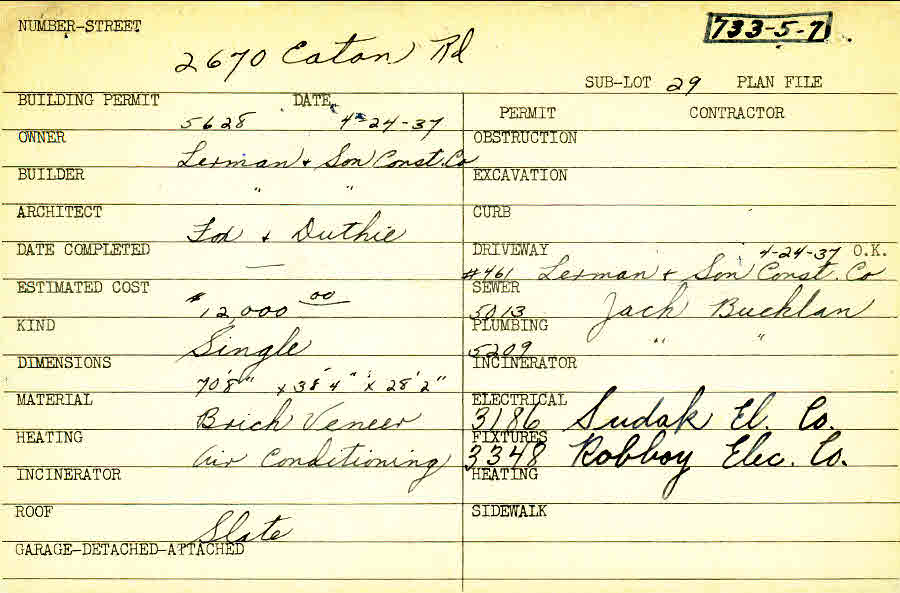 NUMBER-STREET
733-5-7
2670 Eaton Rd
SUB-LOT 29 PLAN FILE
BUILDING PERMIT DATE
5628 4-24-37
PERMIT CONTRACTOR
OWNER
Lerman + Son Const. Co
OBSTRUCTION
BUILDER
" "
EXCAVATION
ARCHITECT
Fox + Duthie
CURB
DATE COMPLETED
—
DRIVEWAY 4-24-37 O.K.
#461 Lerman + Son Const. Co
ESTIMATED COST
$12,000 00
SEWER
5013 Jack Bucklan
KIND
Single
PLUMBING
5209 " "
DIMENSIONS
70'8" x 38'4" x 28'2"
INCINERATOR
MATERIAL
Brick Veneer
ELECTRICAL
3186 Sudak El. Co.
HEATING
Air Conditioning
FIXTURES
3348 Robboy Elec. Co.
INCINERATOR
HEATING
ROOF
Slate
SIDEWALK
GARAGE-DETACHED-ATTACHED